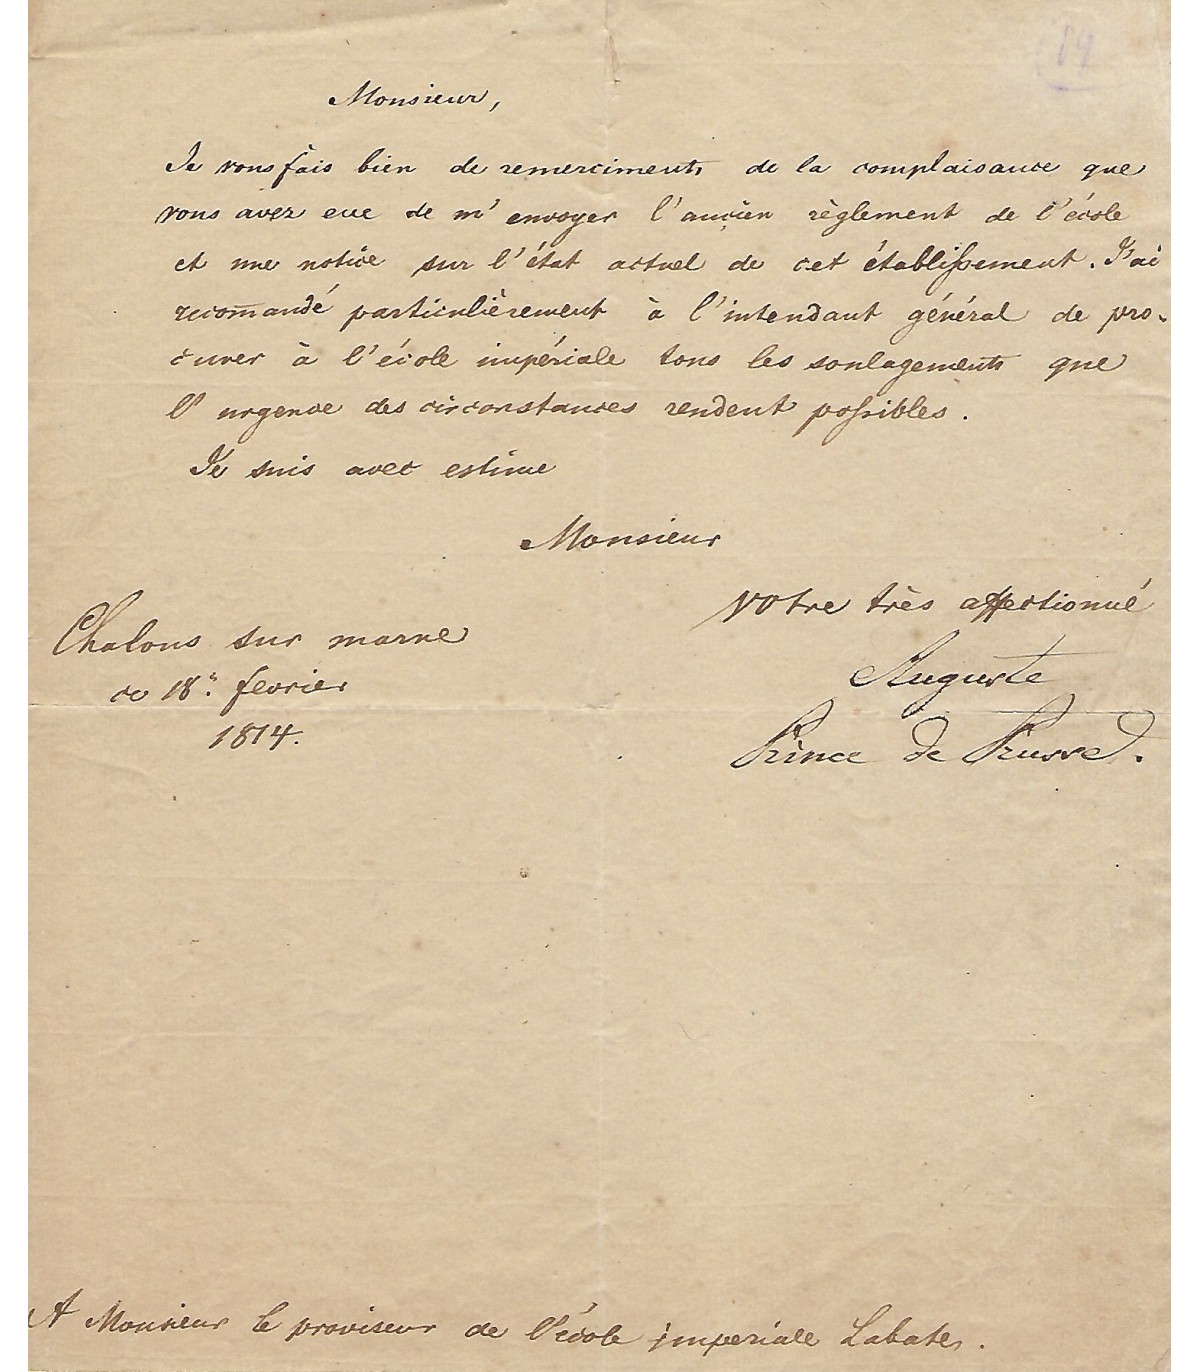 84
Monsieur,
Je vous fais bien de remerciments de la complaisance que
vous avez eue de m'envoyer l'ancien règlement de l'école
et une notice sur l'état actuel de cet établissement. J'ai
recomandé particulièrement à l'intendant général de pro-
curer à l'école impériale tous les soulagements que
l'urgence des circonstances rendent possibles.
Je suis avec estime
Monsieur
votre très affectionné
Chalons sur marne
ce 18: fevrier
1814.
Auguste
Prince de Prusse.
A Monsieur le proviseur de l'école imperiale Labate.